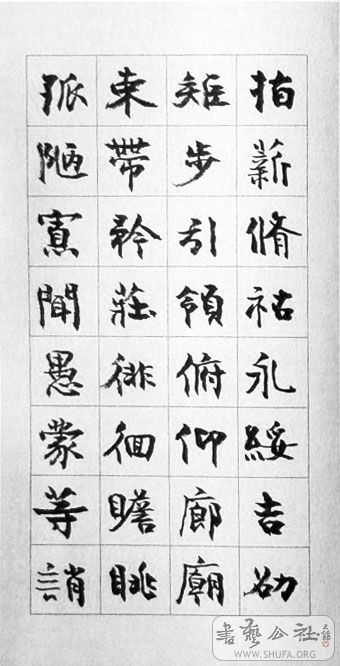 指薪脩祜永綏吉劭
矩步引領俯仰廊廟
束帶矜莊徘徊瞻眺
孤陋寡聞愚蒙等誚
書藝公社
WWW.SHUFA.ORG